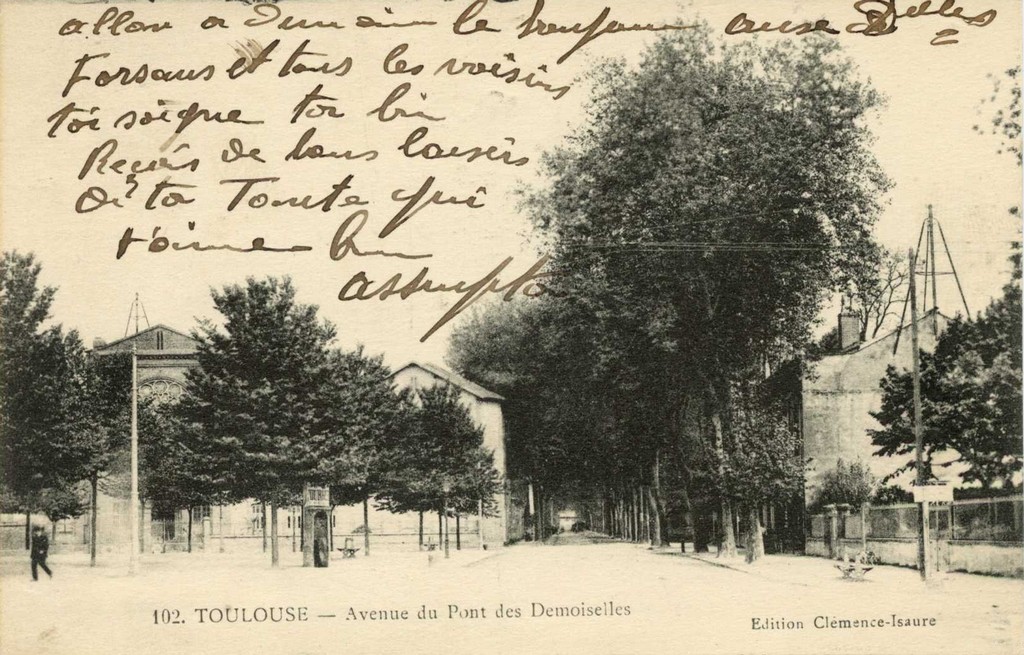 allon a le bonjour ause Delles
Forsans et tous les voisins
toi soigne toi bin
Reçois de bons baisers
de ta Tonte qui
t'aime bin
assumpta
102. TOULOUSE — Avenue du Pont des Demoiselles
Edition Clémence-Isaure